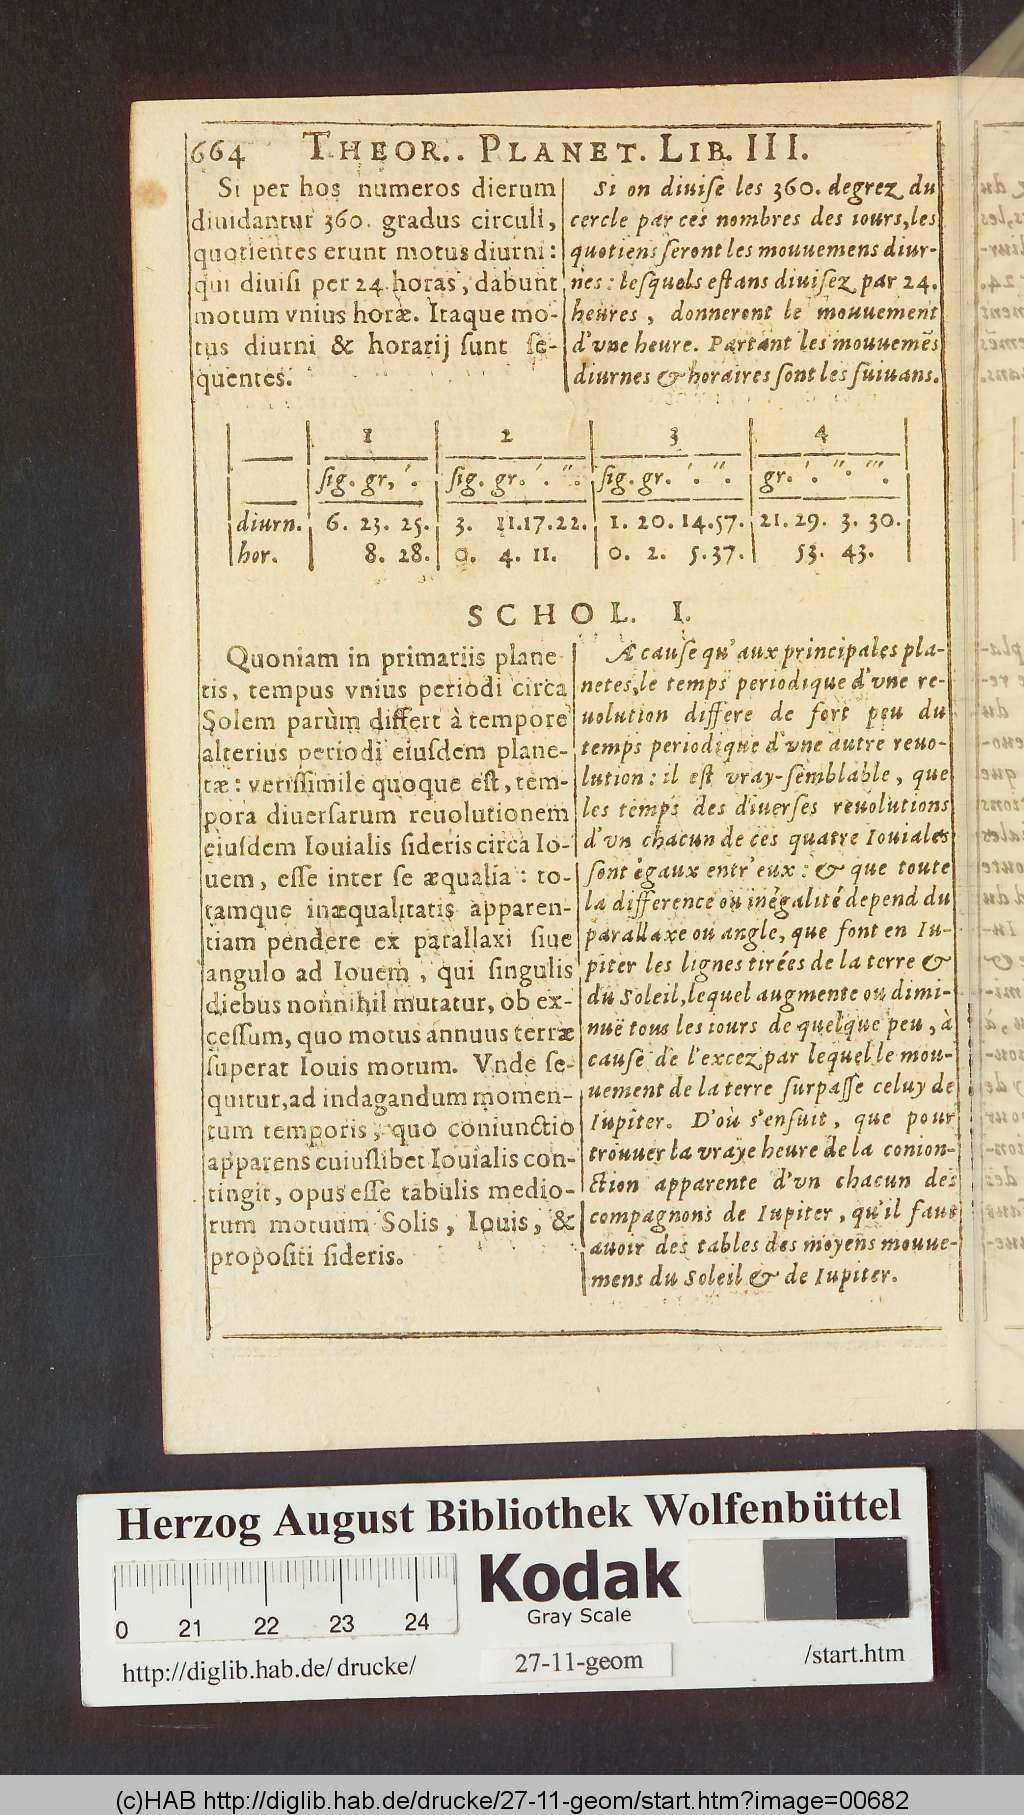 664 THEOR.. PLANET. LIB. III.
Si per hos numeros dierum
diuidantur 360. gradus circuli,
quotientes erunt motus diurni:
qui diuisi per 24 horas, dabunt
motum vnius horæ. Itaque mo-
tus diurni & horarij sunt se-
quentes.
Si on diuise les 360. degrez du
cercle par ces nombres des iours, les
quotiens seront les mouuemens diur-
nes: lesquels estans diuisez par 24.
heures, donneront le mouuement
d'vne heure. Partant les mouuemẽs
diurnes & horaires sont les suiuans.
1 2 3 4
sig. gr, ′. sig. gr. ′. ″. sig. gr. ′. ″. gr. ′. ″. ‴.
diurn. 6. 23. 25. 3. 11.17.22. 1. 20. 14.57. 21. 29. 3. 30.
hor. 8. 28. 0. 4. 11. 0. 2. 5.37. 53. 43.
SCHOL. I.
Quoniam in primariis plane
tis, tempus vnius periodi circa
Solem parùm differt à tempore
alterius periodi eiusdem plane-
tæ: verissimile quoque est, tem-
pora diuersarum reuolutionem
eiusdem Iouialis sideris circa Io-
uem, esse inter se æqualia: to-
tamque inæqualitatis apparen-
tiam pendere ex parallaxi siue
angulo ad Iouem, qui singulis
diebus nonnihil mutatur, ob ex-
cessum, quo motus annuus terræ
superat Iouis motum. Vnde se-
quitur, ad indagandum momen-
tum temporis, quo coniunctio
apparens cuiuslibet Iouialis con-
tingit, opus esse tabulis medio-
rum motuum Solis, Iouis, &
propositi sideris.
A cause qu'aux principales pla-
netes, le temps periodique d'vne re-
uolution differe de fort peu du
temps periodique d'vne autre reuo-
lution: il est vray-semblable, que
les temps des diuerses reuolutions
d'vn chacun de ces quatre Iouiales
sont égaux entr'eux: & que toute
la difference ou inégalité depend du
parallaxe ou angle, que font en Iu-
piter les lignes tirées de la terre &
du Soleil, lequel augmente ou dimi-
nuë tous les iours de quelque peu, à
cause de l'excez par lequel le mou-
uement de la terre surpasse celuy de
Iupiter. D'où s'ensuit, que pour
trouuer la vraye heure de la conion-
ction apparente d'vn chacun des
compagnons de Iupiter, qu'il faut
auoir des tables des moyens mouue-
mens du Soleil & de Iupiter.
Herzog August Bibliothek Wolfenbüttel
0 21 22 23 24
Kodak
Gray Scale
http://diglib.hab.de/drucke/ 27-11-geom /start.htm
(c)HAB http://diglib.hab.de/drucke/27-11-geom/start.htm?image=00682